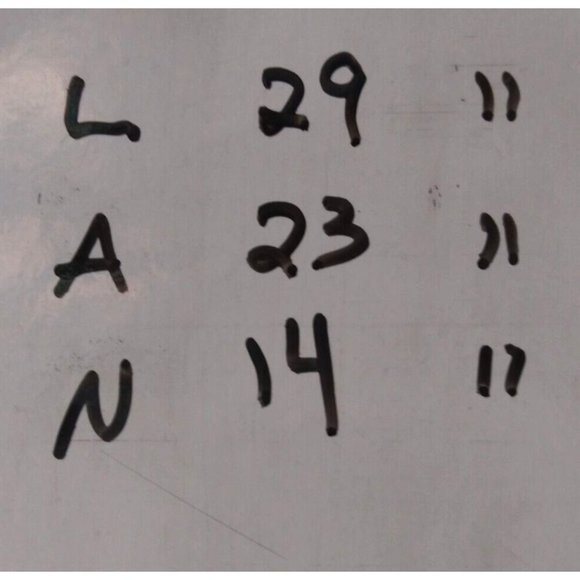 L 29 "
A 23 "
N 14 "